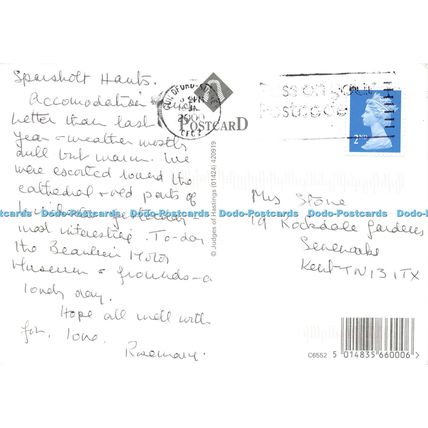 Sparsholt Hants.
Accomodation
better than last
year - weather mostly
dull but warm. We
were escorted round the
cathedral + old parts of
most interesting. To-day
the Beaulieu Motor
Museum + grounds - a
lovely day.
Hope all well with
you. love.
Rosemary.
POSTCARD
© Judges of Hastings (01424) 420919
Pass on your
Postcode
2ND
Mrs Stone
19 Rockdale Gardens
Sevenoaks
Kent TN13 1TX
Dodo-Postcards Dodo-Postcards Dodo-Postcards Dodo-Postcards Dodo-Postcards Dodo-Postcards
C6552 5 014835 660006